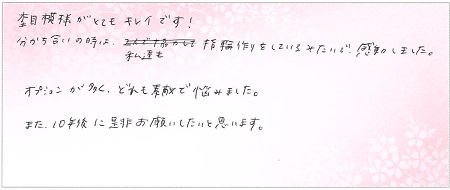 杢目模様がとてもキレイです!
分かち合いの時は、私達も指輪作りをしているみたいで、感動しました。
オプションが多く、どれも素敵で悩みました。
また、10年後に是非お願いしたいと思います。